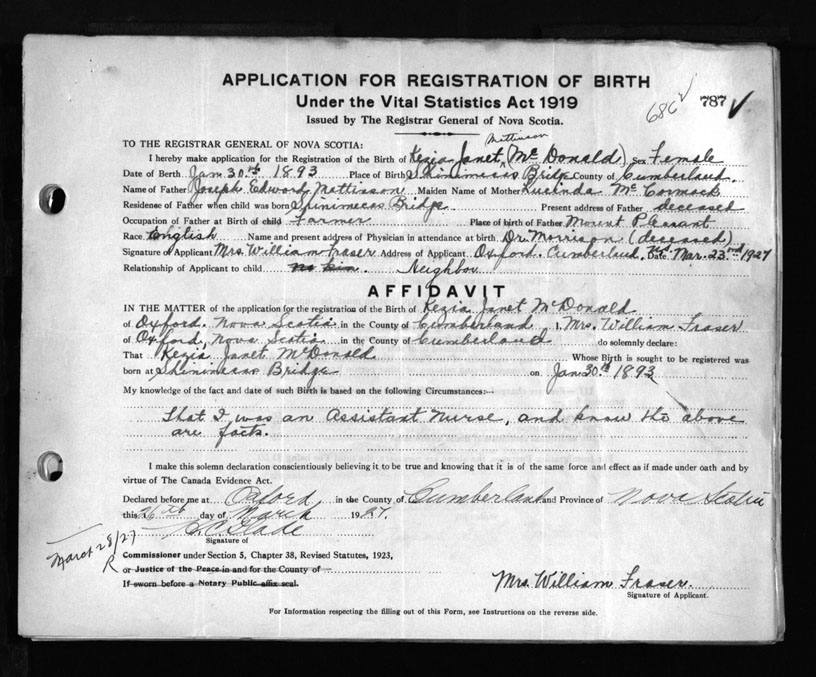 APPLICATION FOR REGISTRATION OF BIRTH
686 ✓ 787 ✓
Under the Vital Statistics Act 1919
Issued by The Registrar General of Nova Scotia.
TO THE REGISTRAR GENERAL OF NOVA SCOTIA:
Mattinson
I hereby make application for the Registration of the Birth of Kezia Janet (Mc Donald) Sex Female
Date of Birth Jan 30th 1893 Place of Birth Shinimecas Bridge County of Cumberland.
Name of Father Joseph Edward Mattinson Maiden Name of Mother Lucinda Mc Cormack
Residense of Father when child was born Shinimecas Bridge Present address of Father deceased
Occupation of Father at Birth of child Farmer Place of birth of Father Mount Pleasant
Race English Name and present address of Physician in attendance at birth Dr. Morrison (deceased)
Signature of Applicant Mrs. William Fraser Address of Applicant Oxford. Cumberland, Date Mar. 23rd 1927
Relationship of Applicant to child no kin. Neighbor
AFFIDAVIT
IN THE MATTER of the application for the registration of the Birth of Kezia Janet McDonald
of Oxford. Nova Scotia in the County of Cumberland I, Mrs. William Fraser
of Oxford, Nova Scotia in the County of Cumberland do solemnly declare:
That Kezia Janet McDonald Whose Birth is sought to be registered was
born at Shinimecas Bridge on Jan 30th 1893
My knowledge of the fact and date of such Birth is based on the following Circumstances:—
That I was an Assistant Nurse, and know the above
are facts.
I make this solemn declaration conscientiously believing it to be true and knowing that it is of the same force and effect as if made under oath and by
virtue of The Canada Evidence Act.
Declared before me at Oxford in the County of Cumberland and Province of Nova Scotia
this 26th day of March 1927.
Slade
Signature of
March 28/27
R
Commissioner under Section 5, Chapter 38, Revised Statutes, 1923,
or Justice of the Peace in and for the County of
If sworn before a Notary Public affix seal.
Mrs. William Fraser.
Signature of Applicant.
For Information respecting the filling out of this Form, see Instructions on the reverse side.